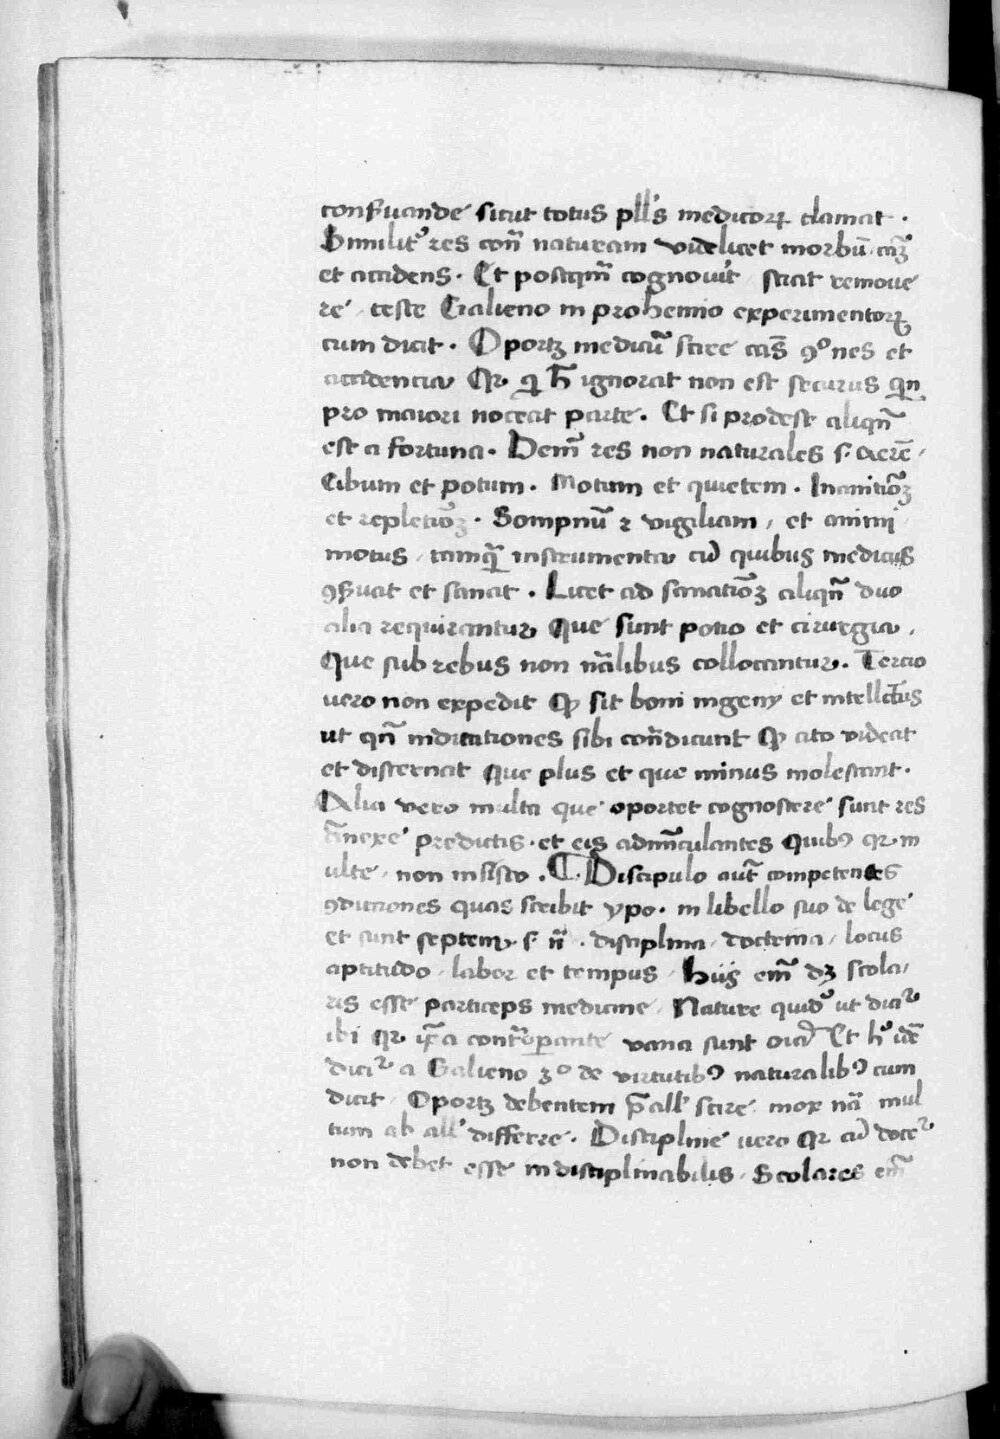 conẜuande sicut totus pll's medicorꝝ clamat .
Similit᷒ res cont̃ naturam videlicet morbũ . cãꝫ
et accidens . Et postqm̃ cognovit / sciat remoue
re / teste Galieno in prohemio experimentorꝝ
cum dicit . Oportꝫ medicũ scire cãs ꝯ°nes et
accidencia Qr qͥ h̃ ignorat non est securus qͥn
pro maiori noceat parte . Et si prodest aliqñ
est a fortuna . Dem̃ res non naturales s. aerẽ /
Cibum et potum . Motum et quietem . Inanitiõꝫ
et repletiõꝫ . Sompnũ ⁊ vigiliam / et animi
motus / tamq̃ instrumenta cũ quibus medicus
ꝯẜuat et sanat . Licet ad sanatiõꝫ aliqñ duo
alia requirantur Que sunt potio et cirurgia .
Que sub rebus non nãlibus collocantur . Tercio
vero non expedit Qp sit boni ingenij et intellcũs
ut qñ indicationes sibi cont̃dicunt Qp cito videat
et discernat que plus et que minus molestant .
Alia vero multa que oportet cognoscere sunt res
ãnexe predictis . et eis adm̃culantes Quibꝰ qr m
ulte / non insisto . ¶ Discipulo aut̃ competentes
ꝯditiones quas scribit ypo . in libello suo de lege
et sunt septem / s. nã . disciplina / doctrina / locus
aptitudo / labor et tempus / Huiꝰ em̃ dꝫ scola/
ris esse particeps medicine / Nature quid᷒ ut dici᷒
ibi Qr ip̃a cont̃ꝯperante vana sunt oia Et h° idẽ
dici᷒ a Galieno 3° de virtutibꝰ naturalibꝰ cum
dicit / Oportꝫ debentem p̃ all' scire mox nã mul
tum ab all' differre . Discipline vero Qr cũ doce᷒
non debet esse indisciplinabilis / Scolares em̃